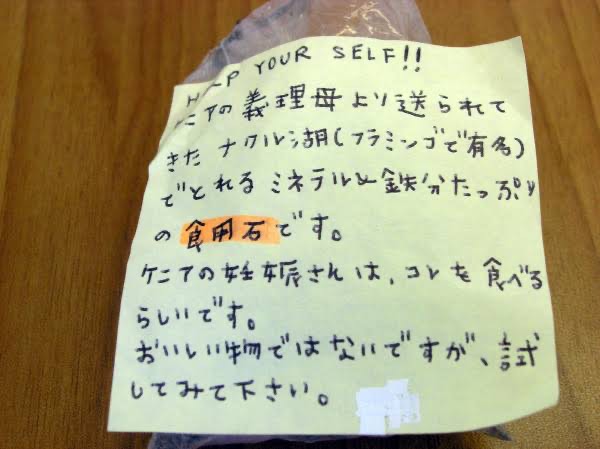 HELP YOUR SELF!!
ケニアの義理母より送られて
きた ナクル湖(フラミンゴで有名)
でとれる ミネラルと鉄分たっぷり
の 食用石です。
ケニアの妊娠さんは、コレを食べる
らしいです。
おいしい物ではないですが、試
してみて下さい。